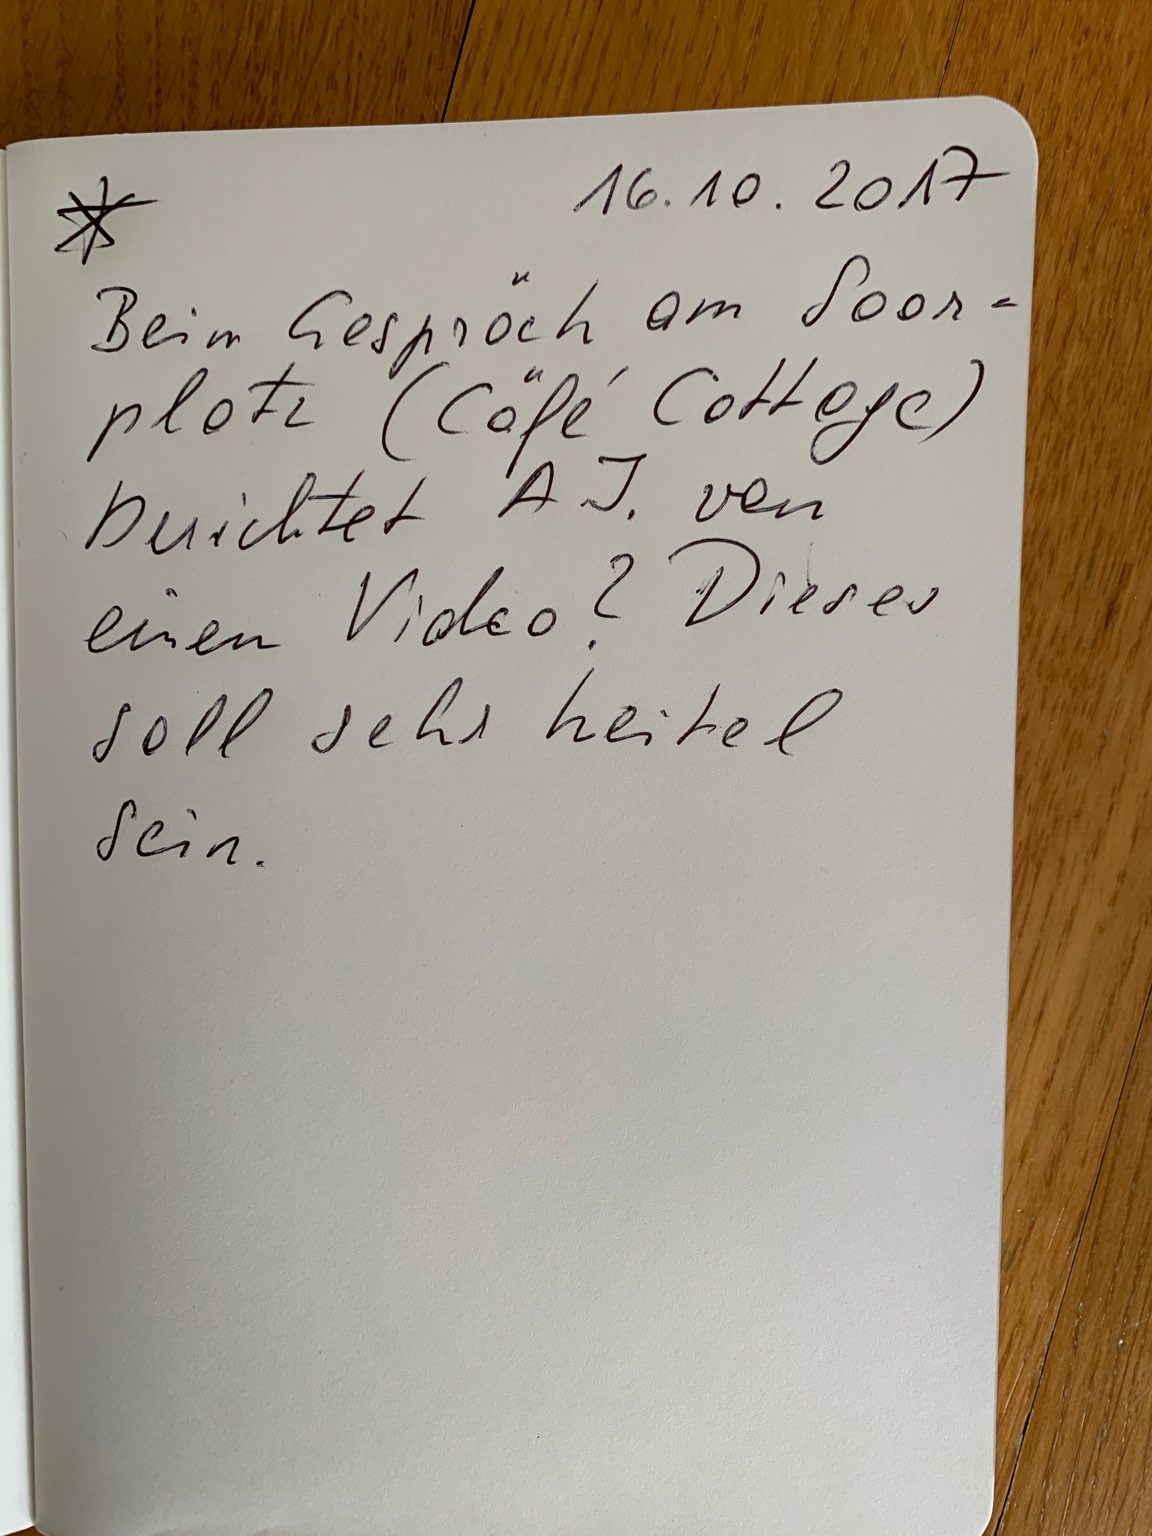 * 16.10.2017
Beim Gespräch am Saar-
platz (Cäfé Cottage)
berichtet A J. von
einen Video? Dieses
soll sehr heikel
sein.